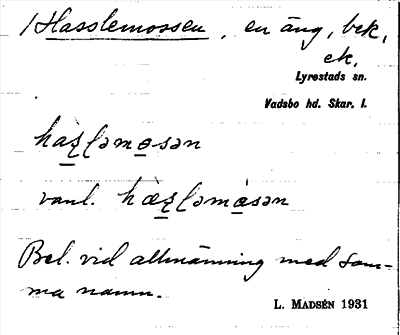 1 Hasslemossen, en äng, bek.
ek.
Lyrestads sn.
Vadsbo hd. Skar. l.
hàs̱ləmo̱sən
vanl. hæ̀s̱ləmo̱sən
Bel. vid allmänning med sam-
ma namn.
L. MADSÉN 1931